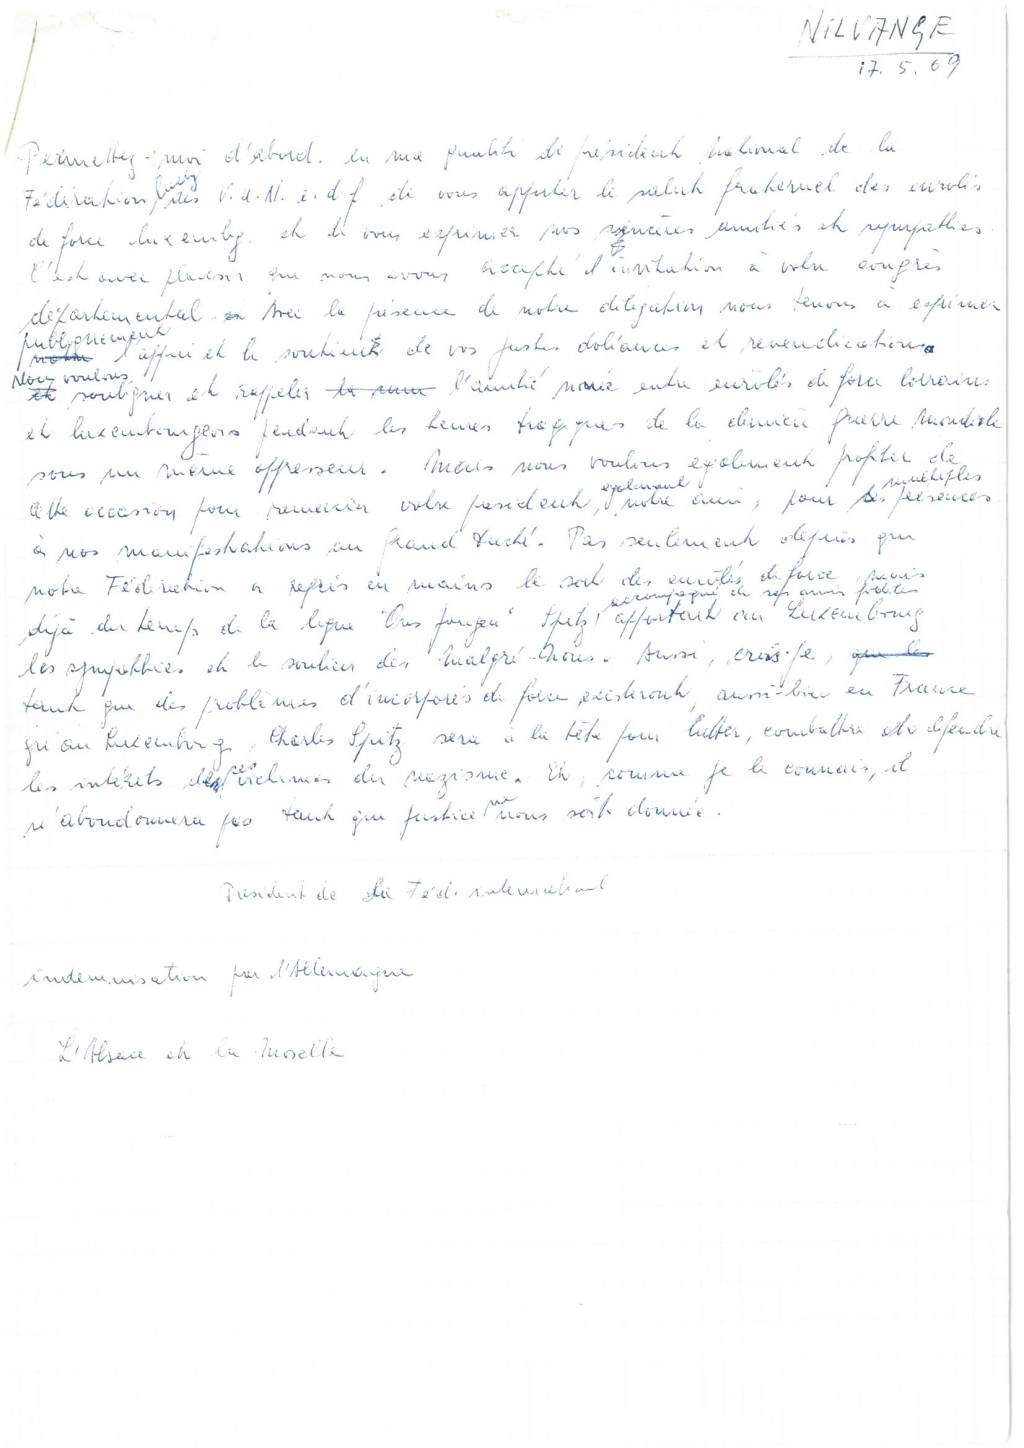 NILVANGE
17. 5. 69
Permettez-moi d'abord, en ma qualité de président national de la
Fédération luxbg des V.d.N. e.d.f de vous apporter le salut fraternel des enrôlés
de force luxembg. et de vous exprimer nos sincères amitiés et sympathies.
C'est avec plaisir que nous avons accepté l'invitation à votre congrès
départemental. Avec la présence de notre délégation nous tenons à exprimer
publiquement
notre l'appui et le soutien de vos justes doléances et revendications.
Nous voulons
et souligner et rappeler l'amitié nouée entre enrôlés de force lorrains
et luxembourgeois pendant les temps tragiques de la dernière guerre mondiale
sous un même oppresseur. Mais nous voulons également profiter de
cette occasion pour remercier votre président, également notre ami, pour ses multiples présences
à nos manifestations au Grand Duché. Pas seulement depuis que
notre Fédération a repris en mains le sort des enrôlés de force, mais
déjà du temps de la ligue "Ons Jongen" Spitz, accompagné de ses amis fidèles apportait au Luxembourg
les sympathies et le soutien des Malgré-Nous. Aussi, crois-je, que les
tant que des problèmes d'incorporés de force existeront, aussi-bien en France
qu'au Luxembourg, Charles Spitz sera à la tête pour lutter, combattre et défendre
les intérêts des victimes du nazisme. Et, comme je le connais, il
n'abondonnera pas tant que justice ne nous soit donnée.
President de la Féd. international
indemnisation par l'Allemagne
L'Alsace et la Moselle